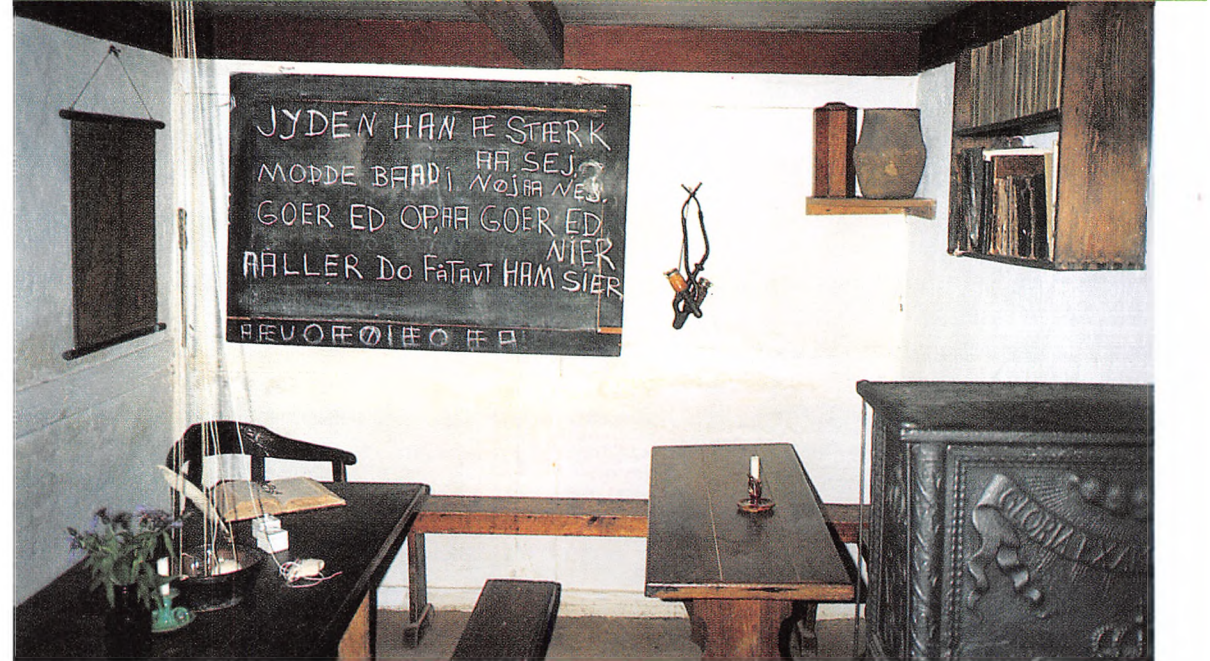 JYDEN HAN Æ STÆRK
AA SEJ,
MODDE BAADI NØJ AA NEJ.
GOER ED OP, AA GOER ED
NIER
AALLER DO FÅTAVT HAM SIER
GLORIA